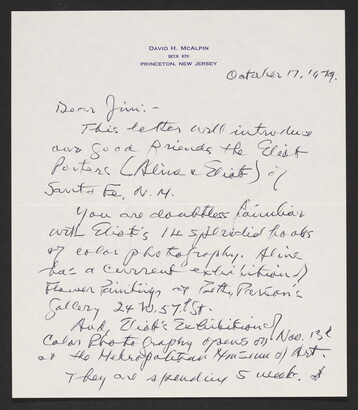 DAVID H. MCALPIN
BOX 670
PRINCETON, NEW JERSEY
October 17, 1979.
Dear Jim:-
This letter will introduce
our good friends the Eliot
Porters (Aline & Eliot) of
Santa Fe, N.M.
You are doubtless familiar
with Eliot's 14 splendid books
of color photography. Aline
has a current exhibition of
Flower Paintings at Betty Parson's
Gallery 24 W. 57th St.
And, Eliot's Exhibition of
Color Photography opens on Nov. 13th
at the Metropolitan Museum of Art.
They are spending 5 weeks